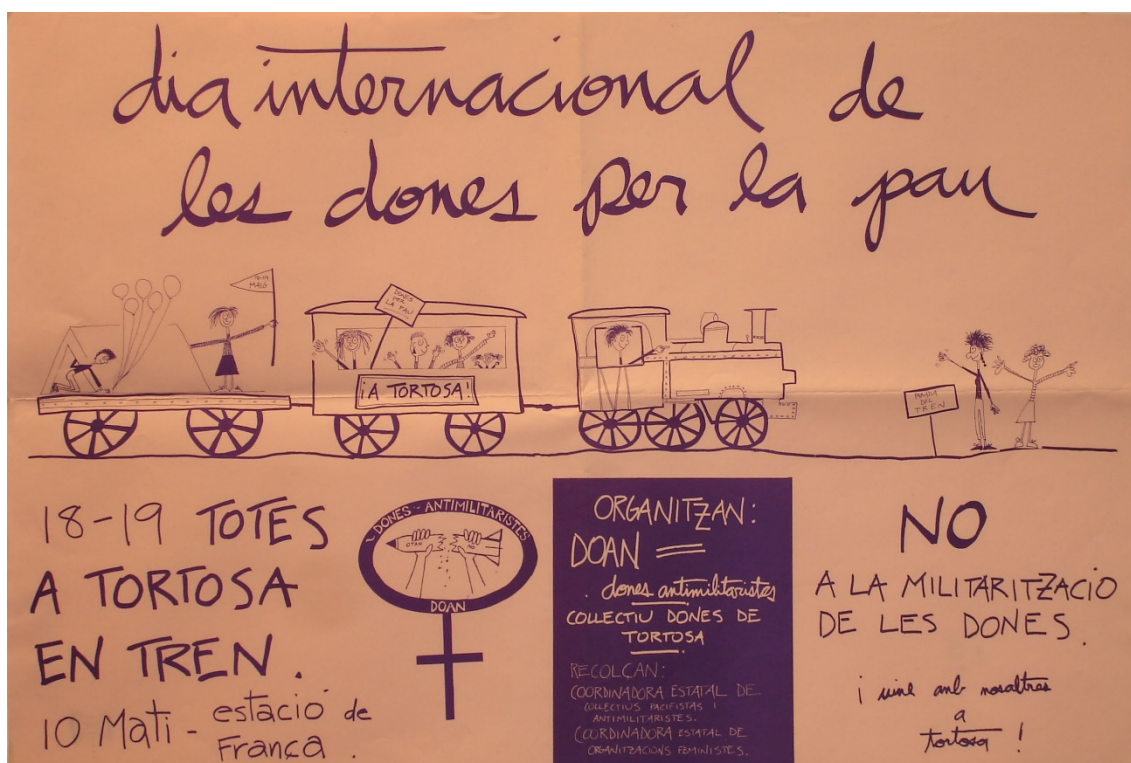 dia internacional de
les dones per la pau
18-19
MAIG
DONES
PER
LA PAU
¡A TORTOSA!
PARADA
DEL
TREN
18-19 TOTES
A TORTOSA
EN TREN.
10 Mati - estació de
França.
DONES - ANTIMILITARISTES
OTAN NO
DOAN
ORGANITZAN:
DOAN =
. dones antimilitaristes
COLLECTIU DONES DE
TORTOSA
RECOLÇAN:
COORDINADORA ESTATAL DE
COLLECTIUS PACIFISTAS I
ANTIMILITARISTES.
COORDINADORA ESTATAL DE
ORGANITZACIONS FEMINISTES.
NO
A LA MILITARITZACIO
DE LES DONES.
¡ vine amb nosaltres
a
tortosa !